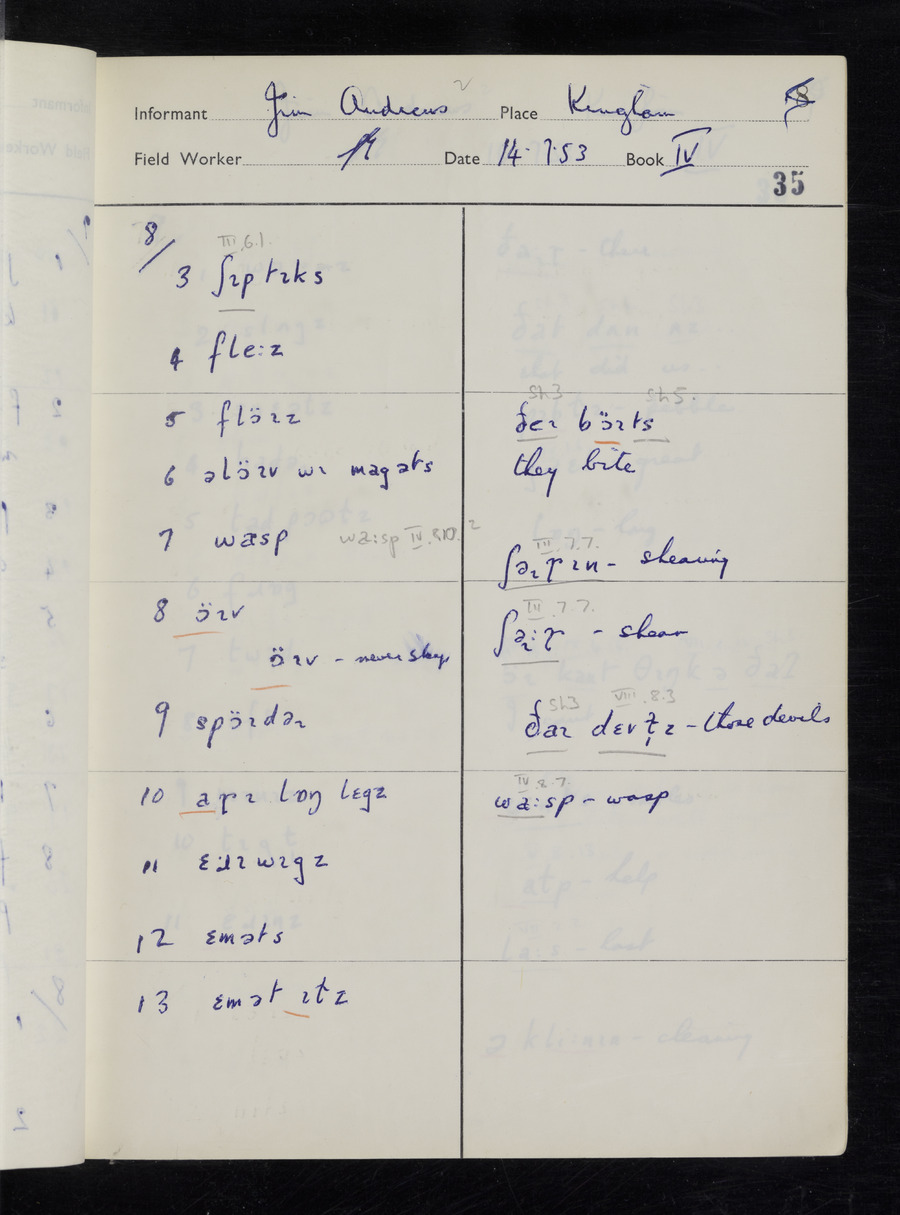 Informant Jim Andrews Place Kingham 8
Field Worker Date 14.7.53 Book IV
35
8/
III.6.1.
3 ʃɪp tɪks
4 fle:z
5 flɔ̈ɪz
6 əlɔ̈ɪv wɪ magəts
7 wæsp wa:sp IV.8.10.
8 ɔ̈ɪv
ɔ̈ɪv - never sleep
9 spɔ̈ɪdəɹ
10 lɒŋ lɛgz
11 wɪgz
12 ɛməts
13 ɛmət
S43 S45.
ðeɪ bɔ̈ɪts
they bite
III.7.7.
- shearing
III.7.7.
- shear
S43 VIII.8.3
- those devils
IV.8.7.
wa:sp - wasp